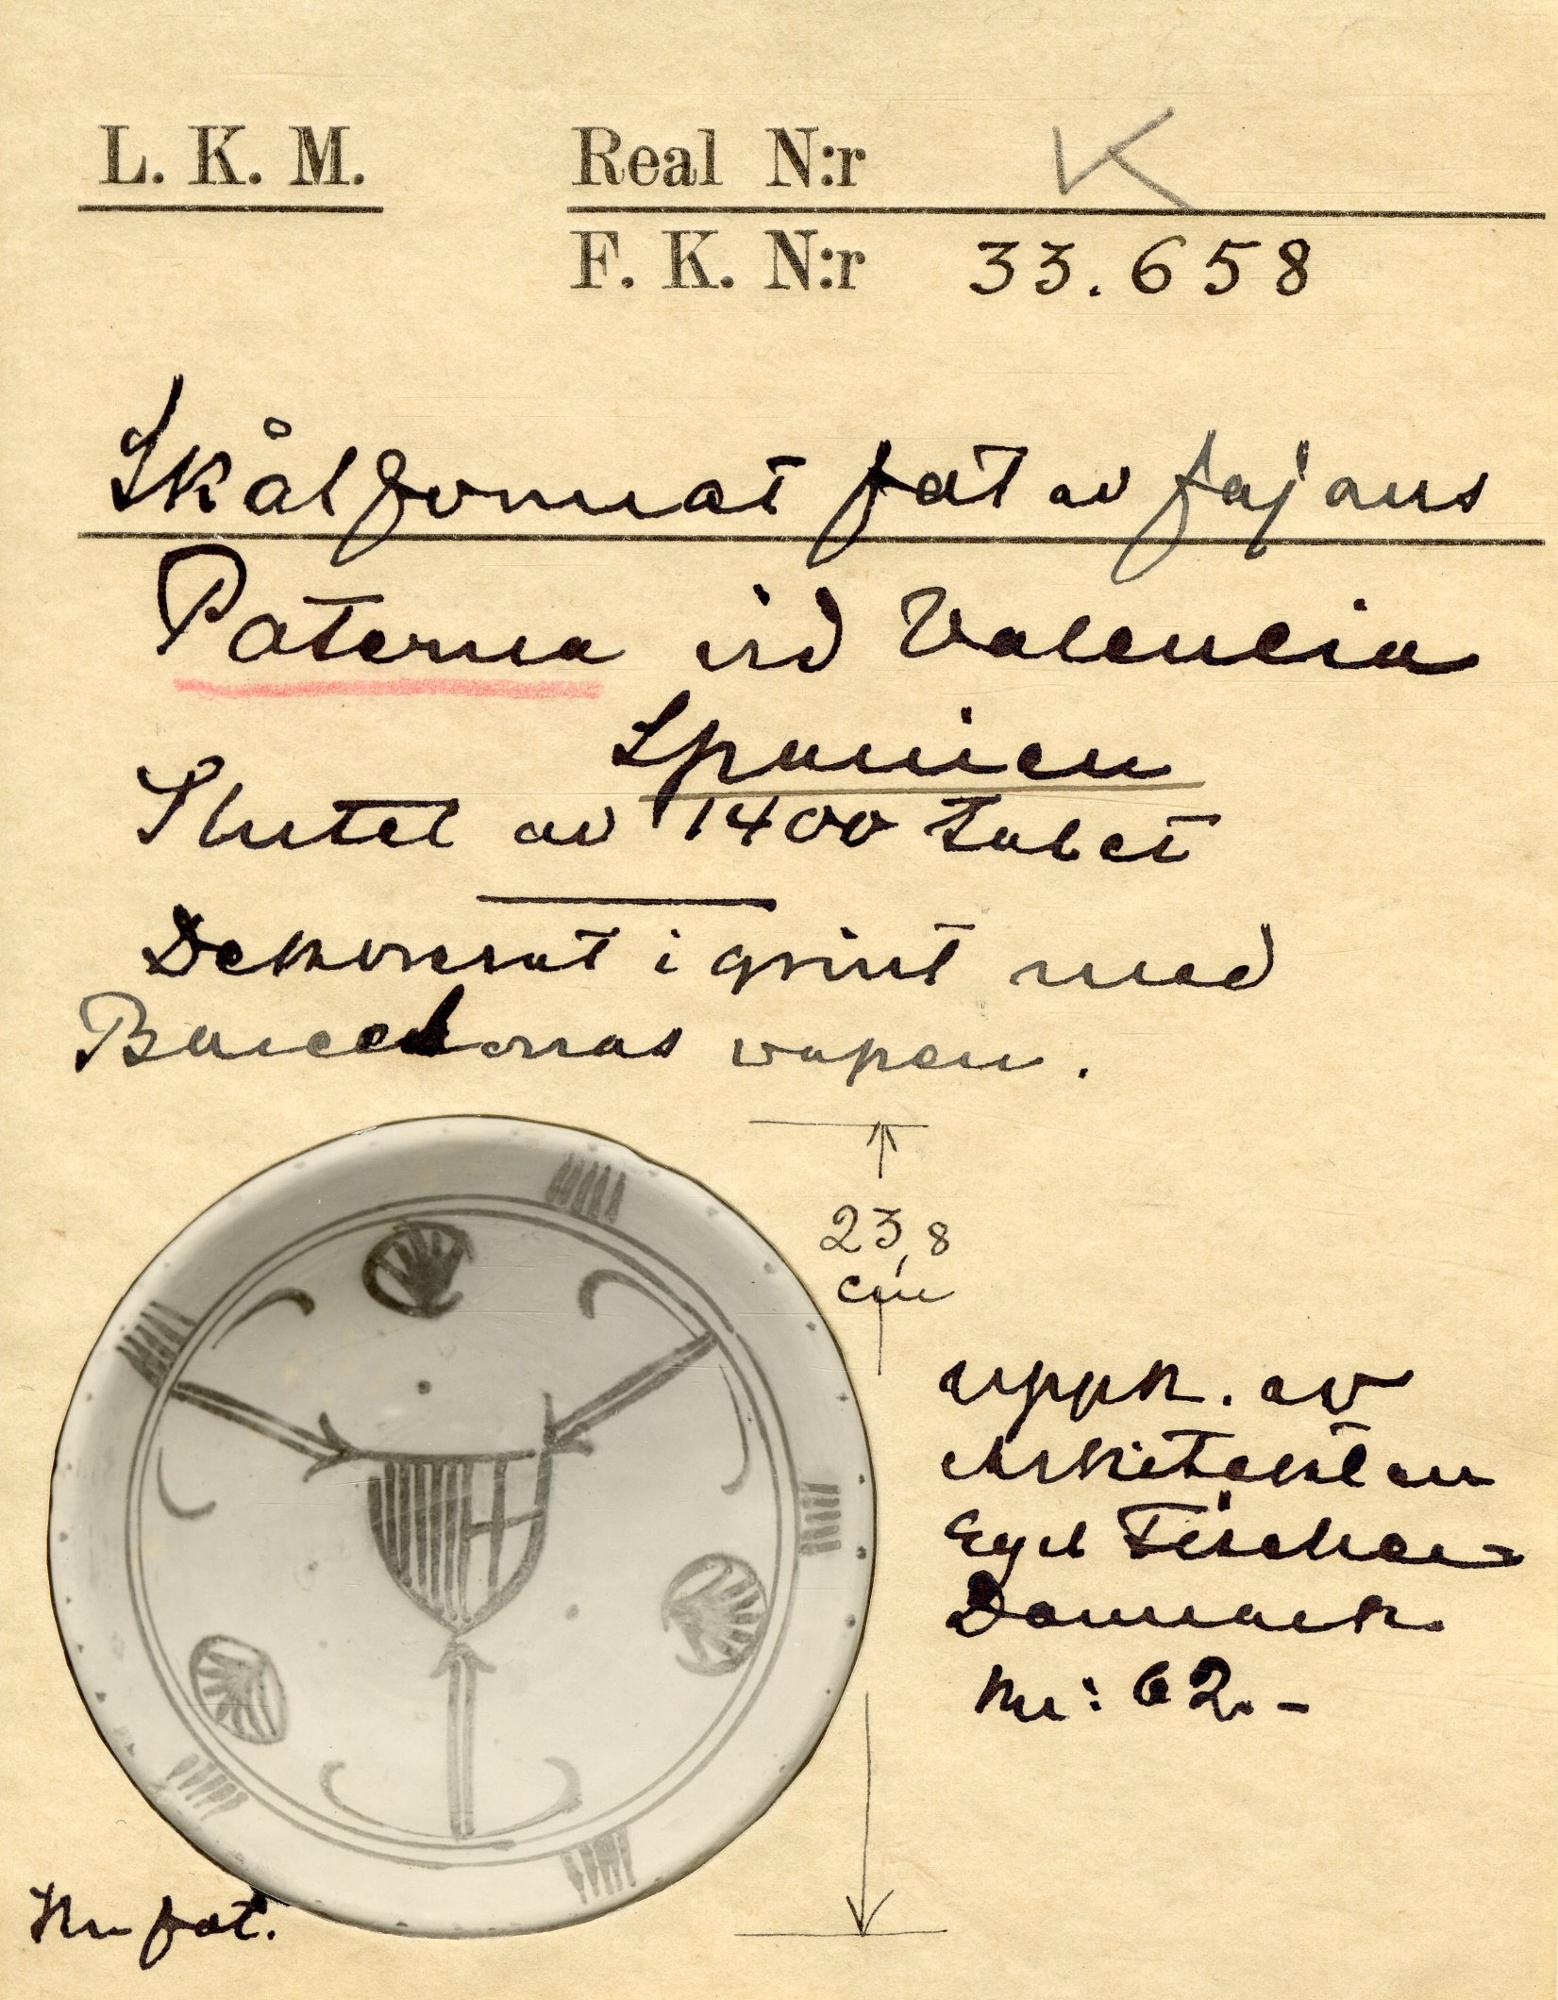 L. K. M.
Real N:r K
F. K. N:r 33.658
Skålformat fat av fajans
Paterna vid Valencia
Spanien
Slutet av 1400 talet
Dekorerat i grönt med
Barcelonas vapen.
23,8
cm
uppk. av
Arkitekten
Egil Fischer
Danmark.
Kr: 62.-
fat.